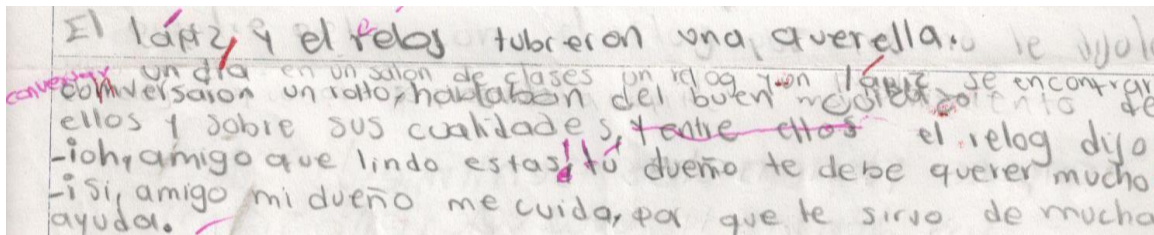 El lápiz y el relog tubieron una querella.
un día en un salon de clases un relog y un lápiz se encontrar
conversaron un ratto, hablaban del buen de
ellos y sobre sus cualidades, y entre ellos el relog dijo
-¡oh, amigo que lindo estas! tú dueño te debe querer mucho
-¡si, amigo mi dueño me cuida, por que le sirvo de mucha
ayuda.